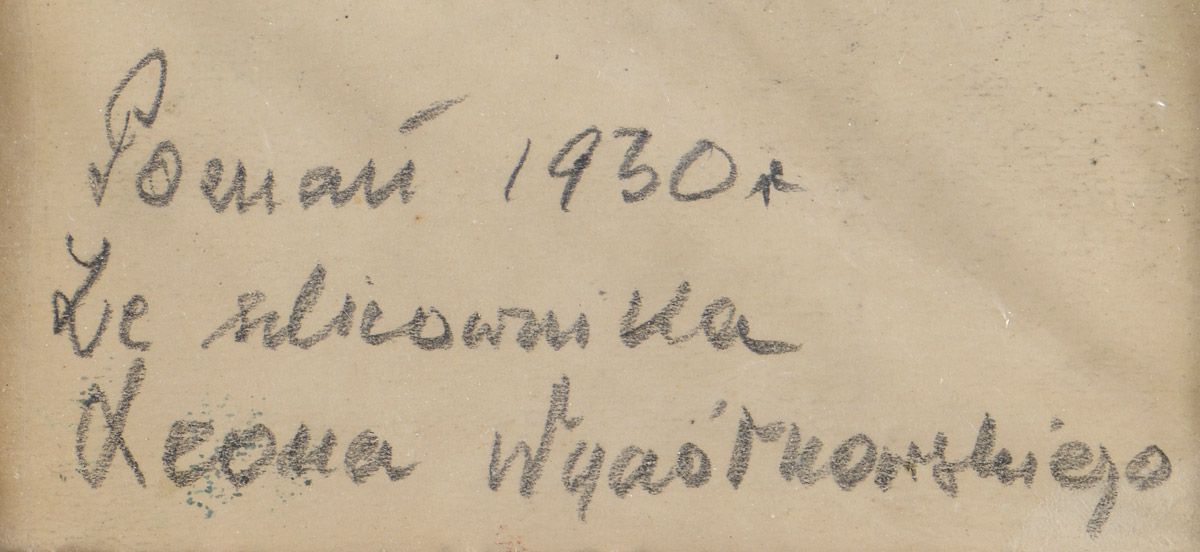 Poznań 1930 r
Ze szkicownika
Leona Wyczółkowskiego